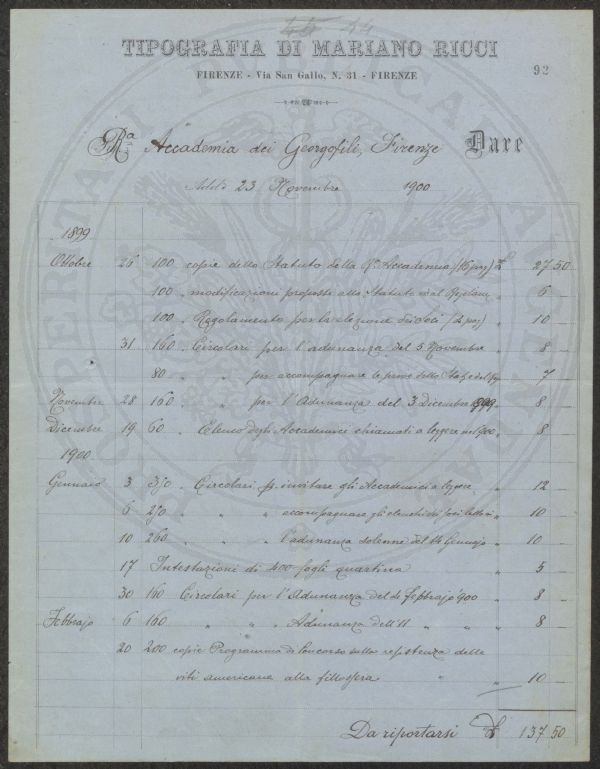 TIPOGRAFIA DI MARIANO RICCI
FIRENZE - Via San Gallo, N. 31 - FIRENZE
92
Rª Accademia dei Georgofili, Firenze Dare
Addì 23 Novembre 1900
1899
Ottobre 26 100 copie dello Statuto della Rª Accademia (16 pag) £ 27 50
100 " modificazioni proposte allo Statuto " 6 —
100 " Regolamento per la elezione (2 pag) " 10 —
31 160 " Circolari per l'adunanza del 5 Novembre " 8 —
80 " per accompagnare le prove dello " 7
Novembre 28 160 " " per l'Adunanza del 3 Dicembre 1899 " 8 —
Dicembre 19 60 " Elenco degli Accademici chiamati a leggere nel 900 " 8 —
1900
Gennaio 3 350 " Circolari p. invitare gli Accademici a leggere " 12 —
6 250 " " " accompagnare gli elenchi dei soci " 10 —
10 260 " " " l'adunanza solenne del 14 Gennajo " 10 —
17 Intestazioni di 400 fogli quartina " 5 —
30 160 Circolari per l'Adunanza del 4 Febbrajo 900 " 8 —
Febbrajo 6 160 " " " Adunanza dell'11 " " " 8 —
20 200 copie Programma di Concorso sulla resistenza delle
viti americane alla fillossera " " 10 —
Da riportarsi £ 137 50